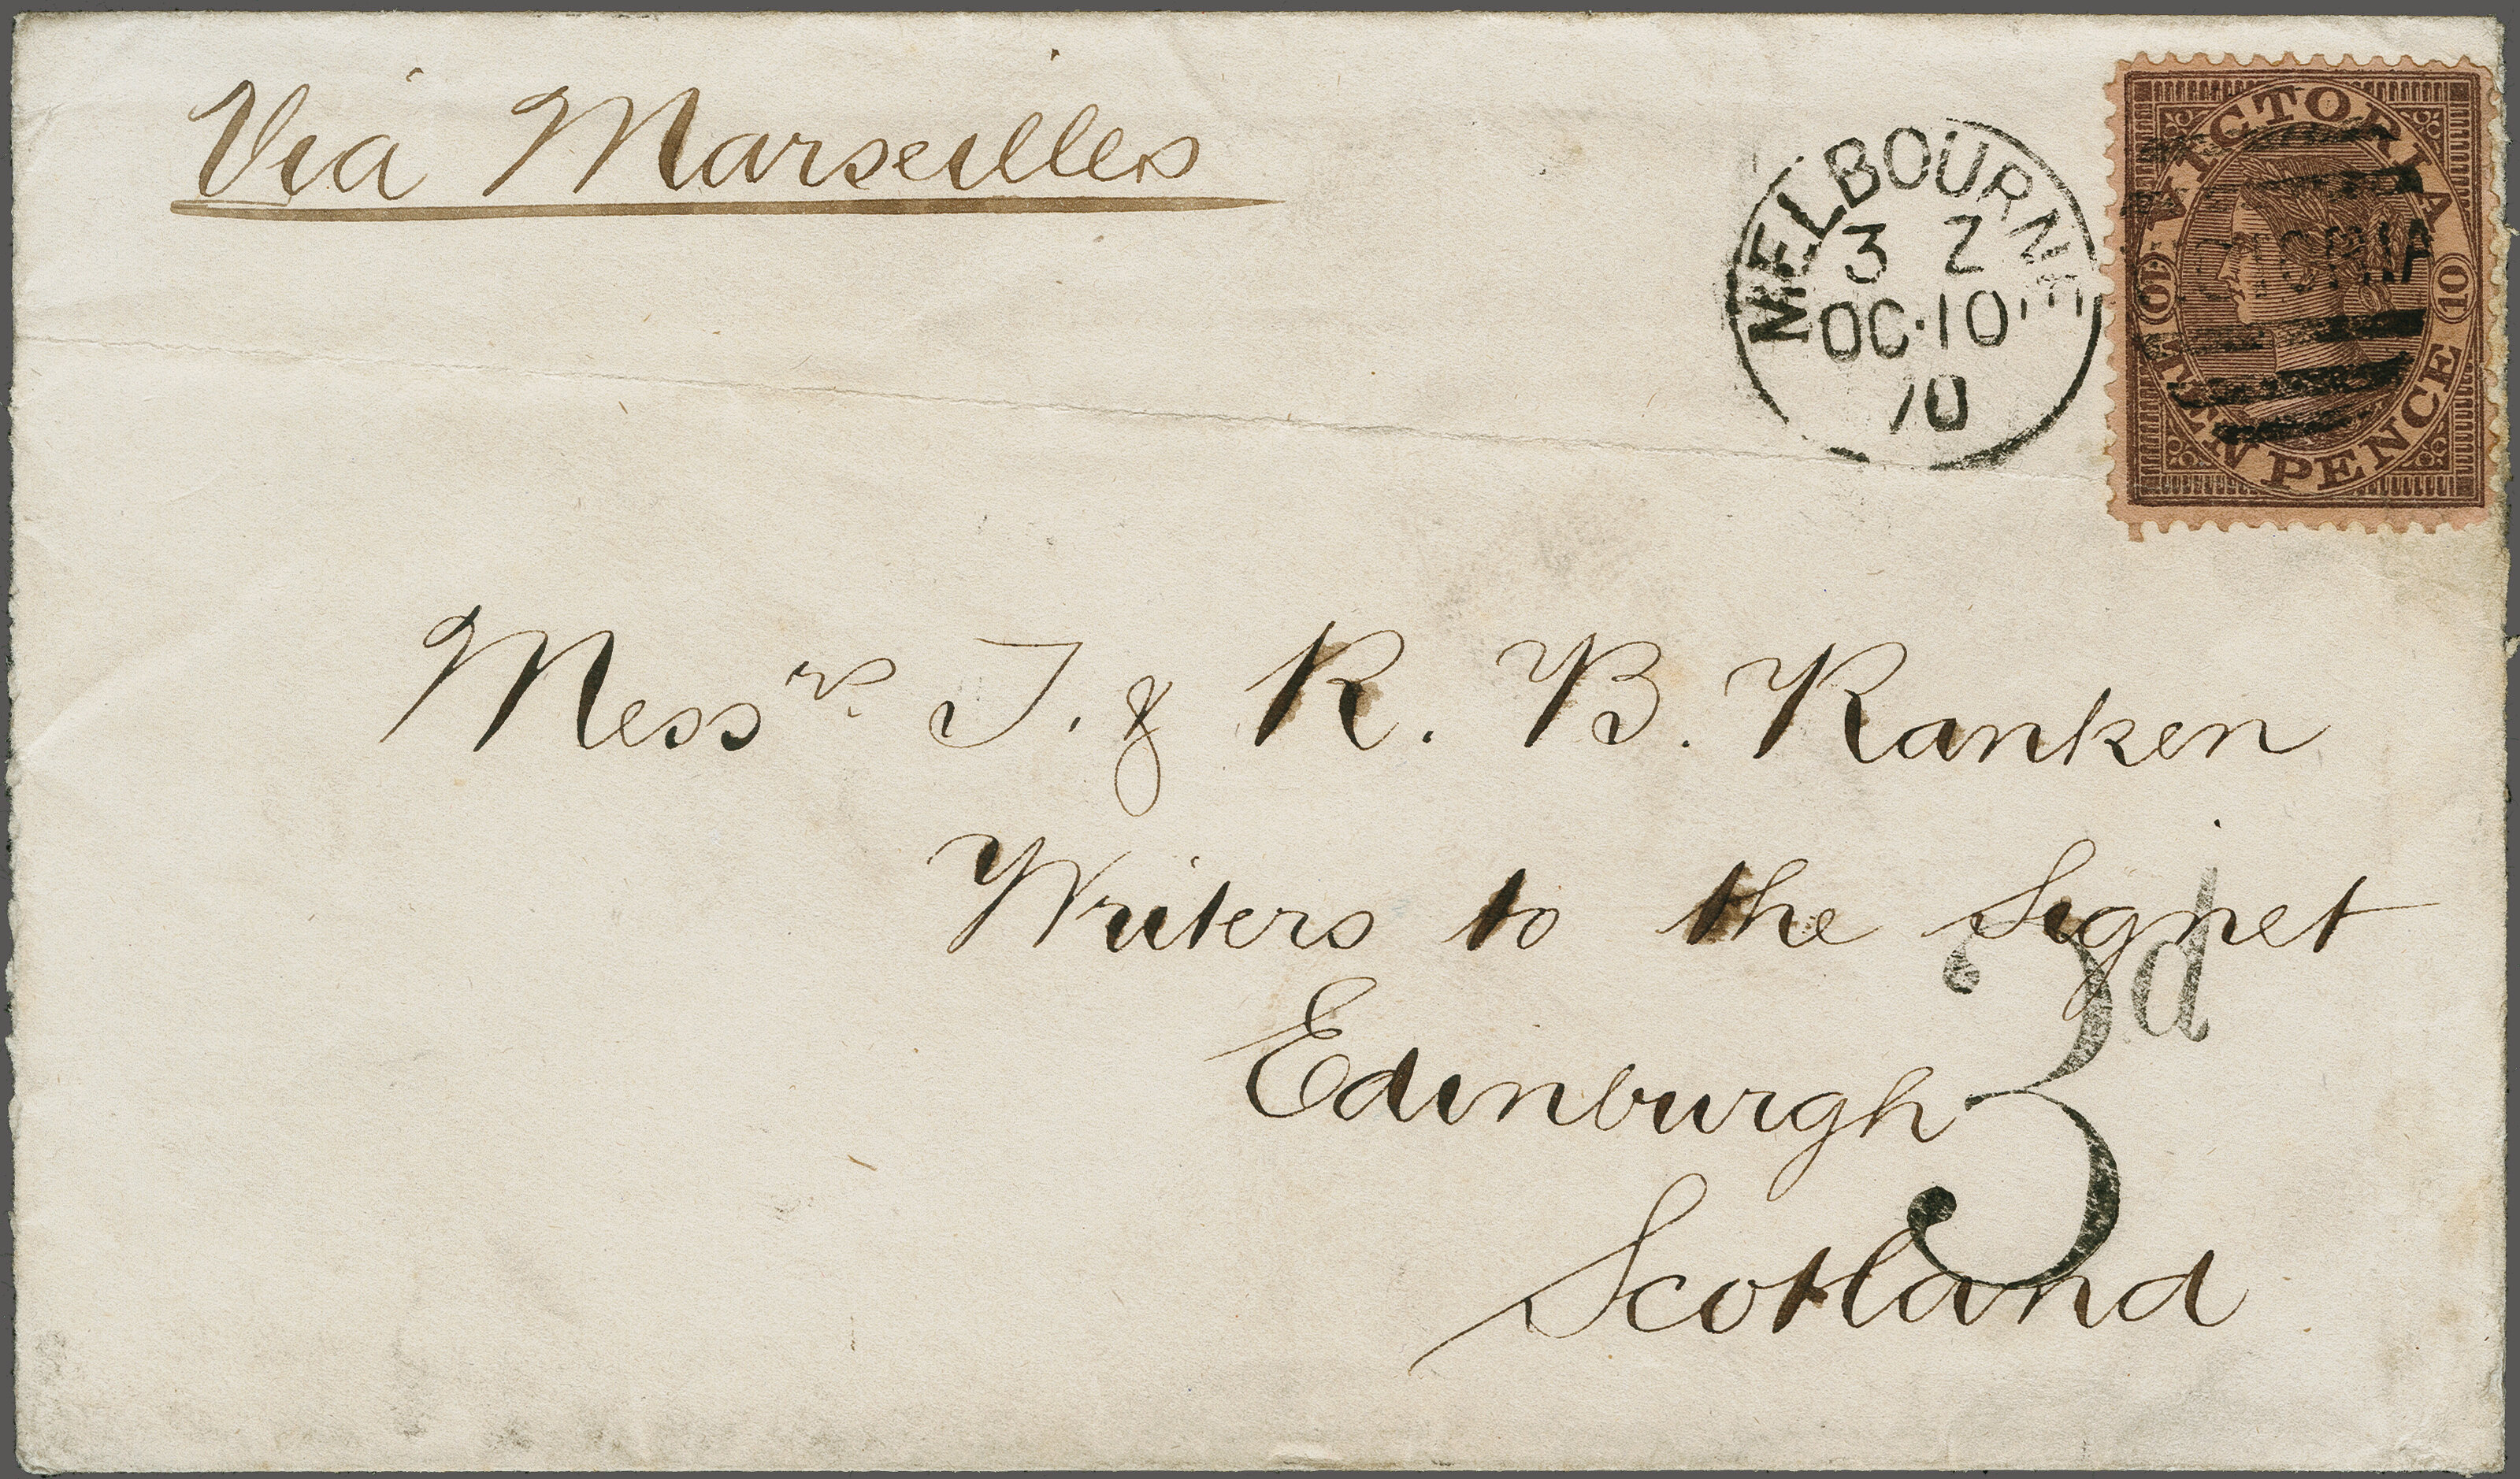 Viá Marseilles
MELBOURNE
3 Z
OC·10
70
VICTORIA
10 10
TEN PENCE
VICTORIA
Messrs. T. & R. B. Ranken
Writers to the Signet
Edinburgh
Scotland
3d